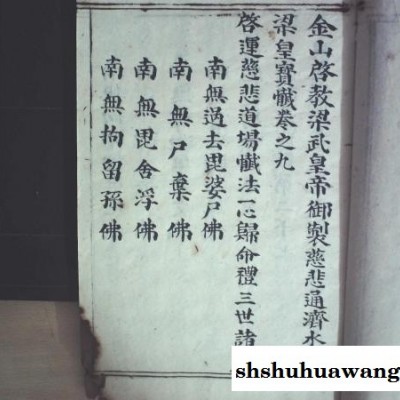 金山啓教梁武皇帝御製慈悲通濟水
梁皇寶懴卷之九
啓運慈悲道塲懴法一心歸命禮三世諸
南無過去毘婆尸佛
南無尸棄佛
南無毘舍浮佛
南無拘留孫佛
shshuhuawang